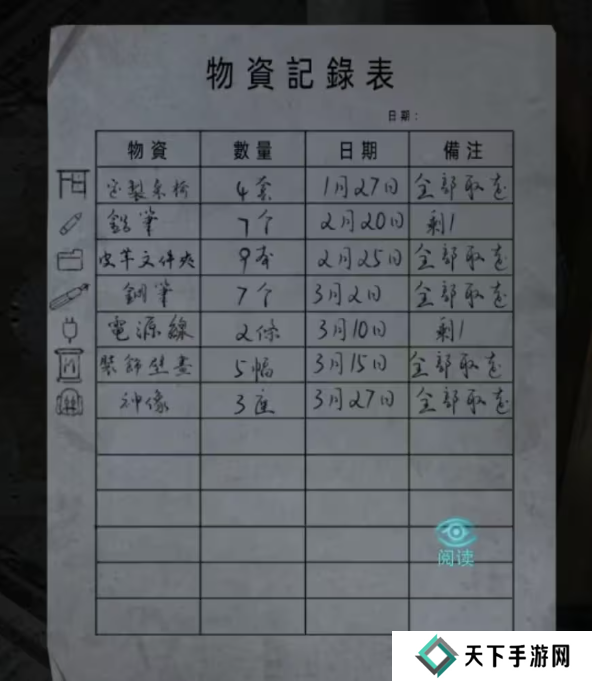 物資記錄表
日期：
物資 數量 日期 備注
定製桌椅 4套 1月27日 全部取走
鉛筆 7个 2月20日 剩1
皮革文件夾 9本 2月25日 全部取走
鋼筆 7个 3月2日 全部取走
電源線 2條 3月10日 剩1
裝飾壁畫 5幅 3月15日 全部取走
神像 3座 3月27日 全部取走
阅读
天下手游网